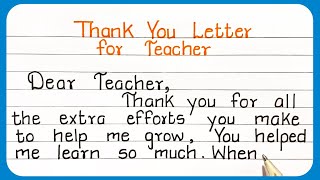 Thank You Letter
for Teacher
Dear Teacher,
Thank you for all
the extra efforts you make
to help me grow, You helped
me learn so much. When